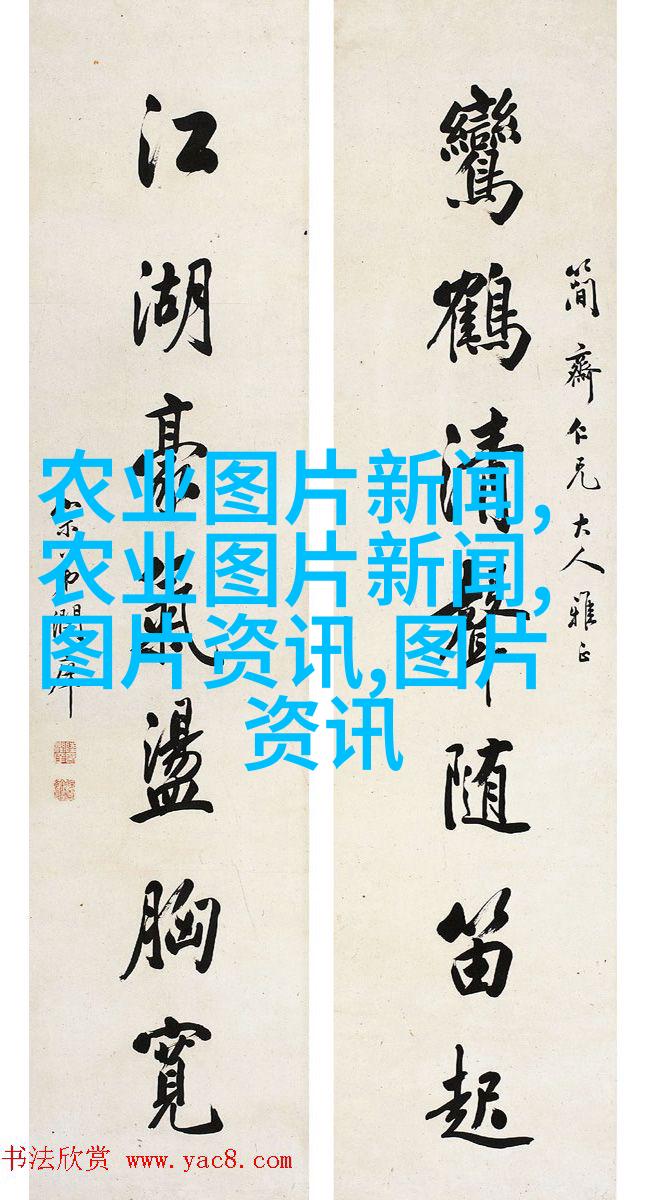 簡齋仁兄大人雅正
鸞鶴清聲随笛起
江湖豪氣盪胸寬
农业图片新闻,
农业图片新闻,
图片资讯,图片
资讯
书法欣赏 www.yac8.com